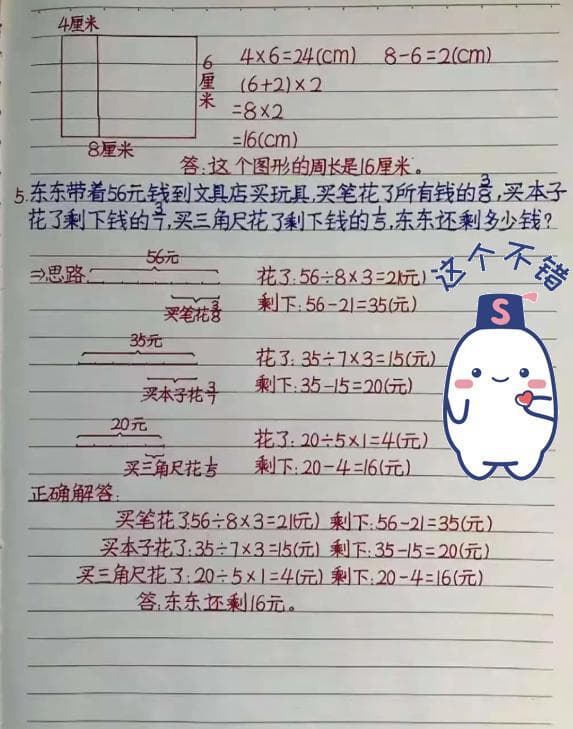 4厘米
6厘米
4×6=24(cm) 8-6=2(cm)
(6+2)×2
=8×2
=16(cm)
8厘米
答:这个图形的周长是16厘米。
5.东东带着56元钱到文具店买玩具,买笔花了所有钱的3/8,买本子
花了剩下钱的3/7,买三角尺花了剩下钱的1/5,东东还剩多少钱?
56元
⇒思路:
花了:56÷8×3=21(元)
买笔花3/8
剩下:56-21=35(元)
35元
花了:35÷7×3=15(元)
买本子花3/7
剩下:35-15=20(元)
20元
花了:20÷5×1=4(元)
买三角尺花1/5
剩下:20-4=16(元)
这个不错
S
正确解答:
买笔花了56÷8×3=21(元) 剩下:56-21=35(元)
买本子花了:35÷7×3=15(元) 剩下:35-15=20(元)
买三角尺花了:20÷5×1=4(元) 剩下:20-4=16(元)
答:东东还剩16元。